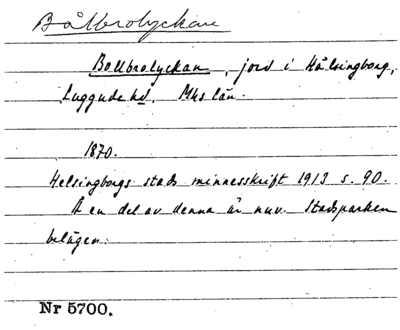 Bålbrolyckan
Bollbrolyckan, jord i Hälsingborg,
Luggude hd. Mhs län.
1870.
Helsingborgs stads minnesskrift 1913 s. 90.
Å en del av denna är nuv. Stadsparken
belägen.
Nr 5700.